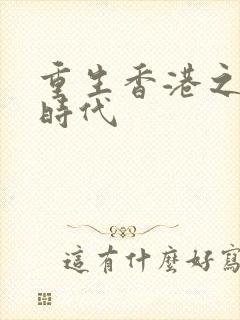 重生香港之
時代
這有什麼好寫